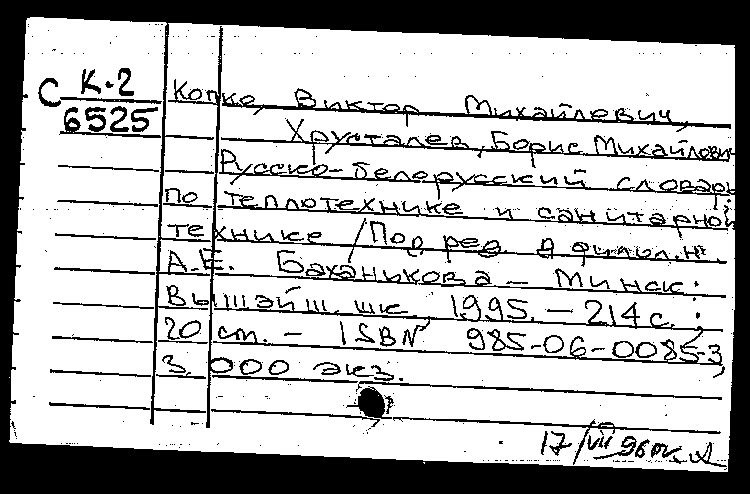 С К.2
6525
Копко, Виктор Михайлевич,
Хрусталев, Борис Михайлович
Русско-белорусский словарь
по теплотехнике и санитарной
технике / Под ред. д. филол. н.
А.Е. Баханикова — Минск:
Вышэйш. шк., 1995. — 214 с.;
20 см. — ISBN 985-06-0085-3,
3.000 экз.
17/VII 96